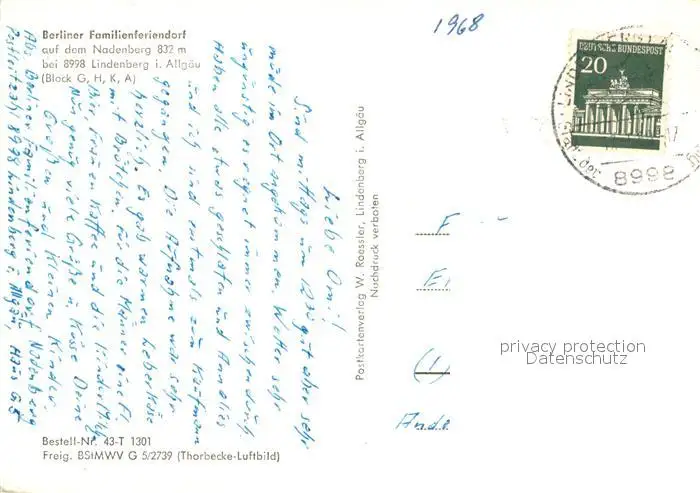 1968
Berliner Familienferiendorf
auf dem Nadenberg 832 m
bei 8998 Lindenberg i. Allgäu
(Block G, H, K, A)
DEUTSCHE BUNDESPOST
20
LINDENBERG
8998
Liebe Omi!
Sind mittags um 12³⁰ gut aber sehr
müde im Ort angekommen. Wetter sehr
ungünstig es regnet immer zwischendurch.
Haben alle etwas geschlafen und Annelies
und ich und erstmals zum Kaufmann
gegangen. Die Aufnahme war sehr
herzlich. Es gab warmen Leberkäse
mit Brötchen, für die Männer eine Fl.
Bier, Frauen Kaffee und die Kinder Milch.
Nun genug viele Grüße u. Küsse Deine
Großen und kleinen Kinder.
Abs. Berliner Familienferiendorf Nadenberg
Postleitzahl 8998 Lindenberg i. Allgäu, Haus G5
Postkartenverlag W. Roessler, Lindenberg i. Allgäu
Nachdruck verboten
F
E
(1)
Ande
privacy protection
Datenschutz
Bestell-Nr. 43-T 1301
Freig. BStMWV G 5/2739 (Thorbecke-Luftbild)